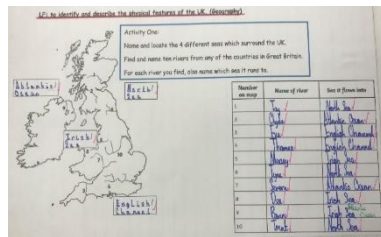 LP: to identify and describe the physical features of the UK. (Geography)
Activity One:
Name and locate the 4 different seas which surround the UK.
Find and name ten rivers from any of the countries in Great Britain.
For each river you find, also name which sea it runs to.
Atlantic
Ocean
North
Sea
Irish
Sea
English
Channel
Number on map
Name of river
Sea it flows into
1
Tay
North Sea
2
Clyde
Atlantic Ocean
3
Exe
English Channel
4
Thames
English Channel
5
Mersey
Irish Sea
6
Tyne
North Sea
7
Severn
Atlantic Ocean
8
Irish Sea
9
Bann
10
Trent
North Sea